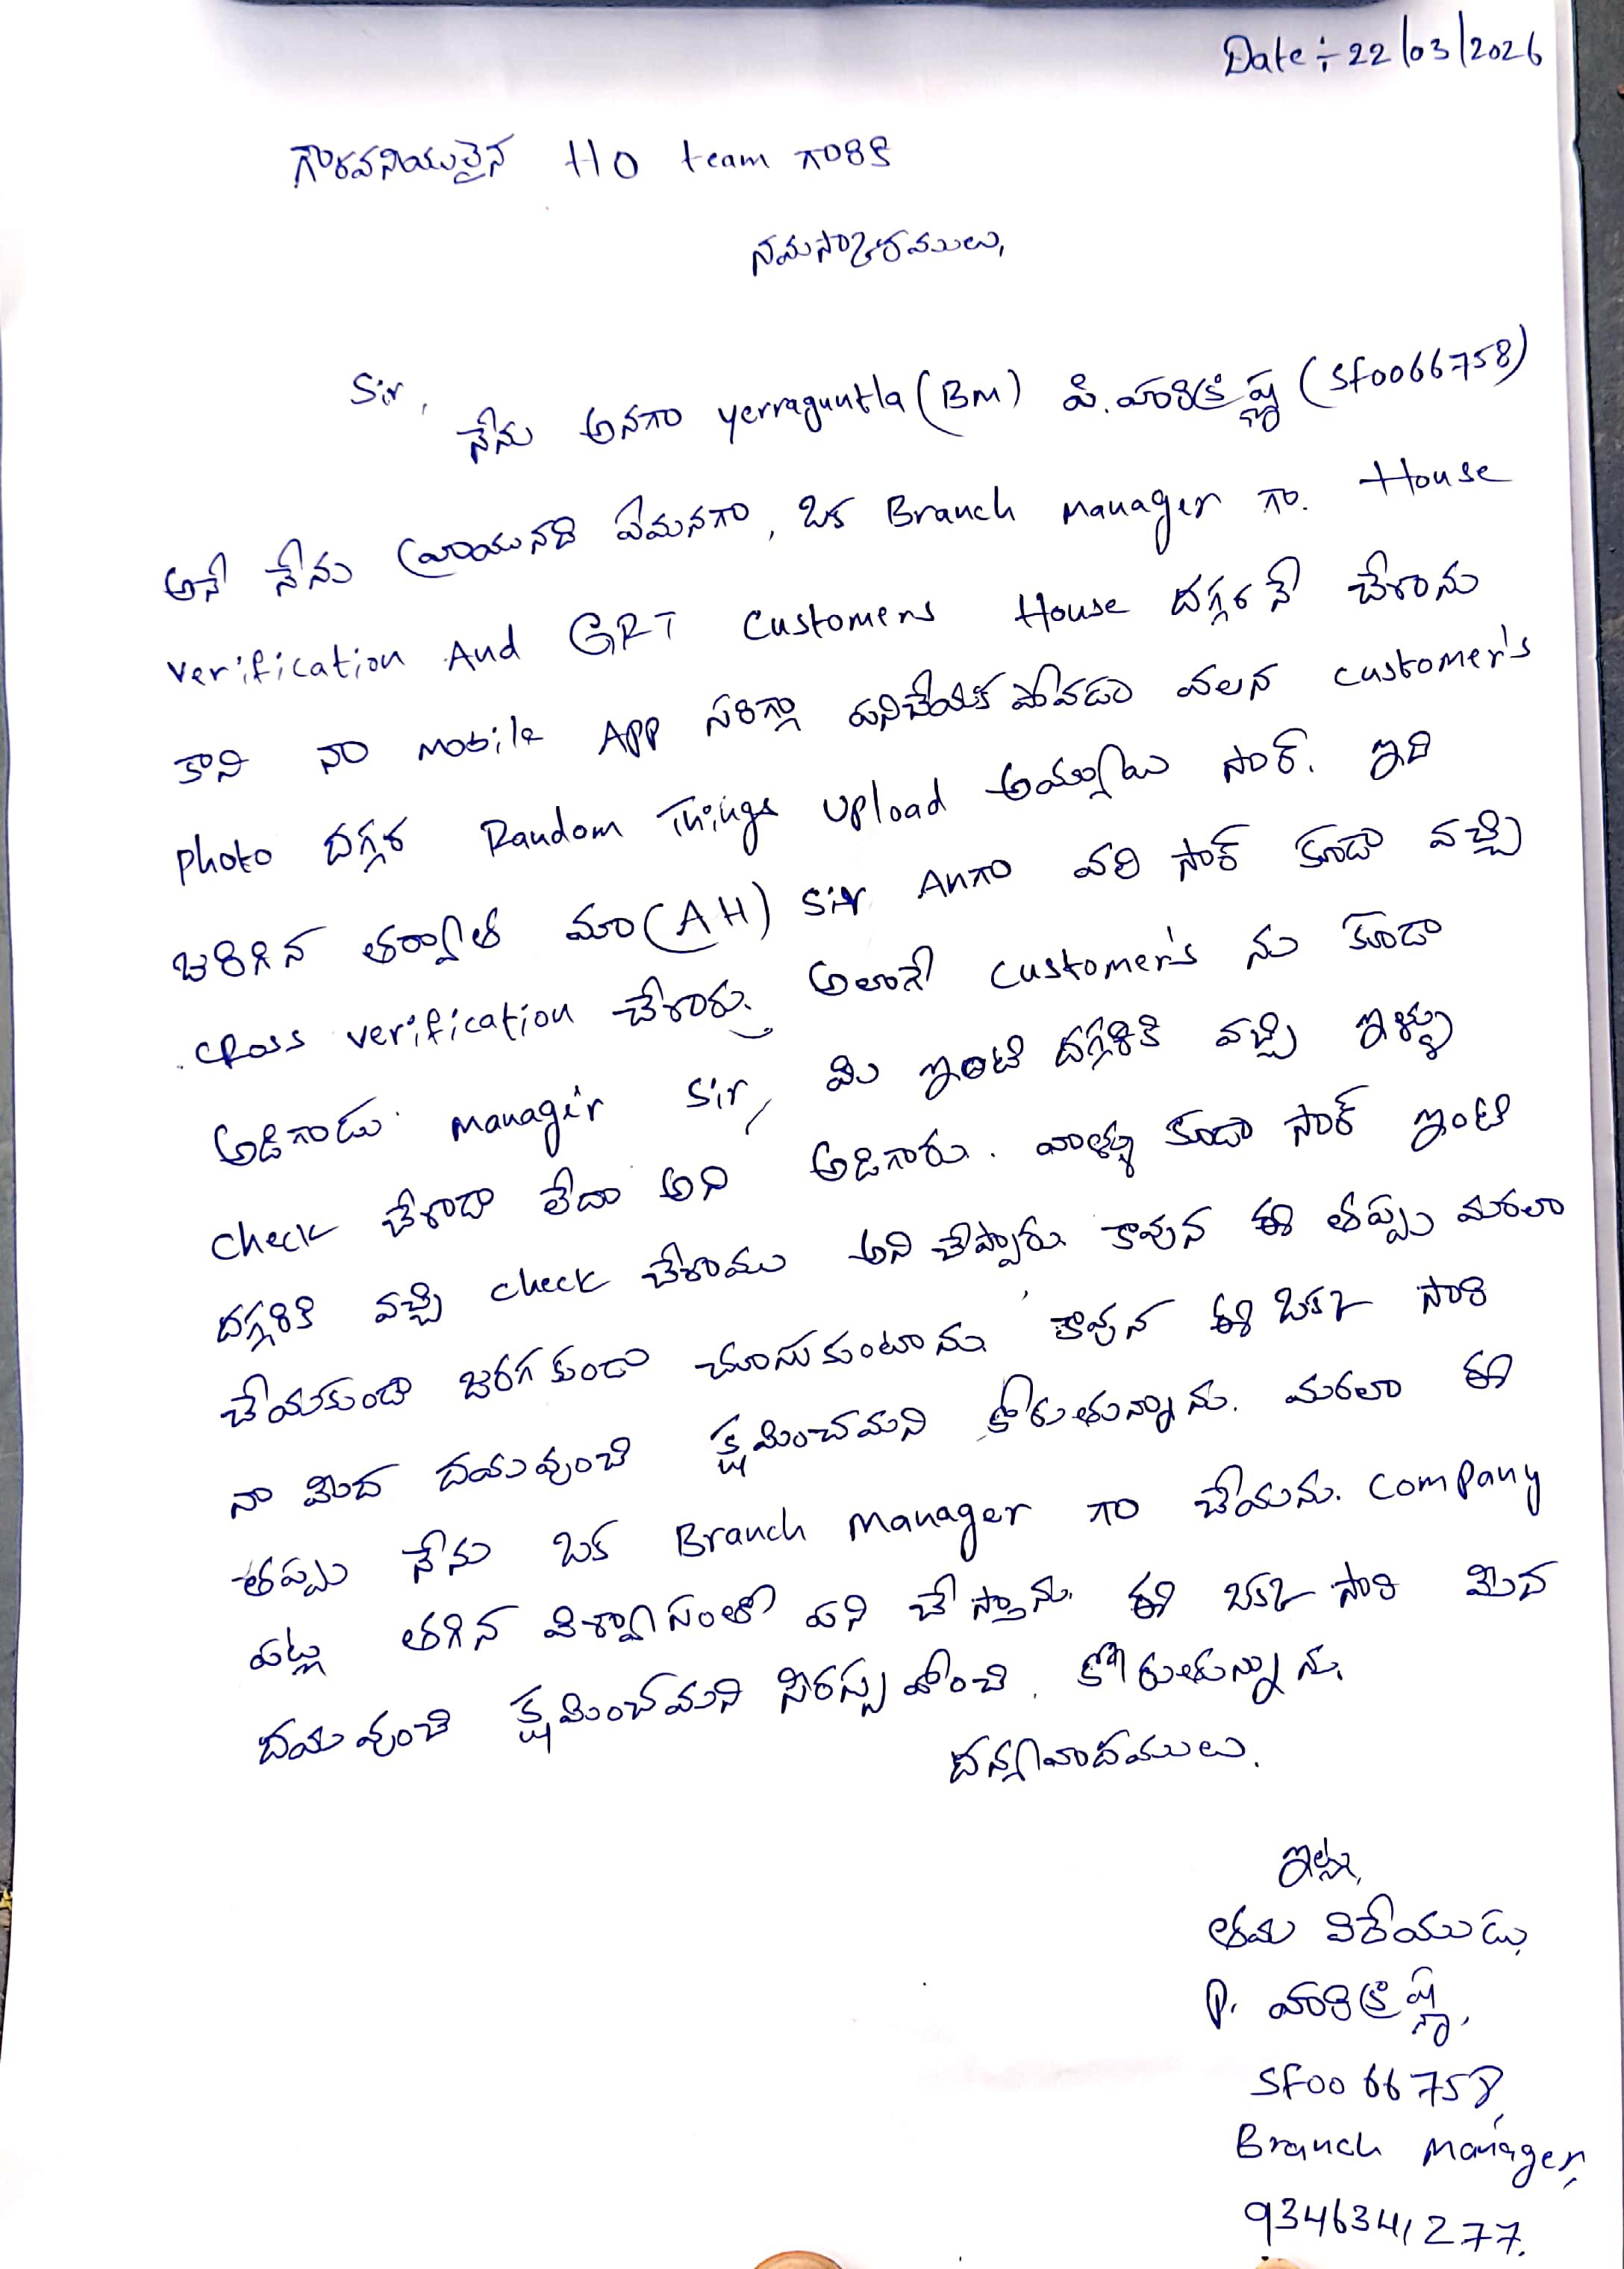 Date :- 22/03/2026
గౌరవనియులైన HO team గారికి
నమస్కారములు,
Sir,
నేను అనగా yerraguntla (BM) పి. హరిక్రిష్ణ (Sf0066758)
అనే నేను వ్రాయునది ఏమనగా, ఒక Branch Manager గా. House
verification And GRT Customers House దగ్గరనే చేశాను
కాని నా Mobile App సరిగ్గా పనిచేయక పోవడం వలన customer's
photo దగ్గర Random Things upload అయ్యాయి సార్. ఇది
జరిగిన తర్వాత మా (AH) sir Anగా వలి సార్ కూడా వచ్చి
cross verification చేశారు. అలానే customer's ను కూడా
అడిగాడు manager sir, మి ఇంటి దగ్గరికి వచ్చి ఇళ్ళు
check చేశాడా లేదా అని అడిగారు. వాళ్ళు కూడా సార్ ఇంటి
దగ్గరికి వచ్చి check చేశాము అని చెప్పారు. కావున ఈ తప్పు మరలా
చేయకుండా జరగకుండా చూసుకుంటాను. కావున ఈ ఒకక సారి
నా మీద దయవుంచి క్షమించమని కోరుతున్నాను. మరలా ఈ
తప్పు నేను ఒక Branch Manager గా చేయను. Company
పట్ల తగిన విశ్వాసంతో పని చేస్తాను. ఈ ఒకక సారి మీద
దయవుంచి క్షమించమని సిరస్సు వొంచి. కోరుతున్నాను.
దన్యవాదములు.
ఇట్లు,
తమ విదేయుడు,
P. హరిక్రిష్ణ,
Sf0066758,
Branch Manager,
9346341277.